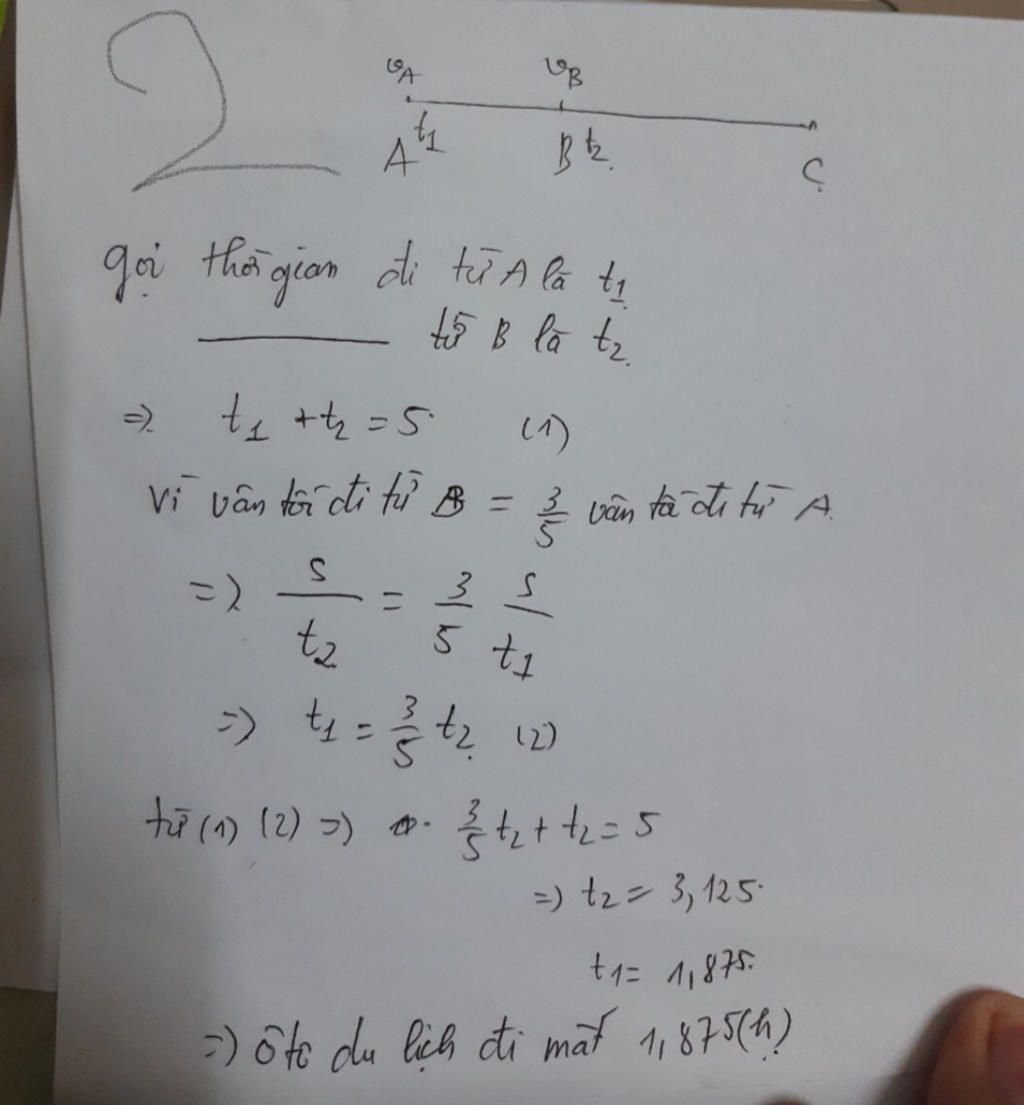 2
v_A v_B
A t_1 B t_2. C
gọi thời gian đi từ A là t_1
——— từ B là t_2.
=> t_1 + t_2 = 5 (1)
Vì vân tốc đi từ B = 3/5 vân tốc đi từ A.
=> s/t_2 = 3/5 s/t_1
=> t_1 = 3/5 t_2 (2)
từ (1) (2) => 3/5 t_2 + t_2 = 5
=> t_2 = 3,125.
t_1 = 1,875.
=> Ôtô du lịch đi mất 1,875(h)